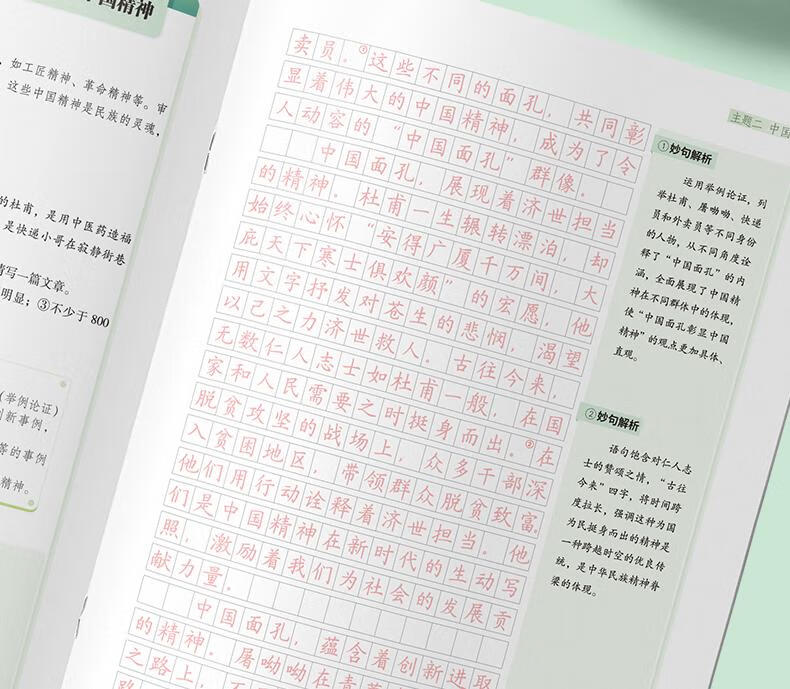 国精神
，如工匠精神、革命精神等。审
这些中国精神是民族的灵魂，
的杜甫，是用中医药造福
是快递小哥在寂静街巷
请写一篇文章。
明显；③不少于800
（举例论证）
创新事例，
等的事例
精神。
卖员。①这些不同的面孔，共同彰
显着伟大的中国精神，成为了令
人动容的“中国面孔”群像。
中国面孔，展现着济世担当
的精神。杜甫一生辗转漂泊，却
始终心怀“安得广厦千万间，大
庇天下寒士俱欢颜”的宏愿，他
用文字抒发对苍生的悲悯，渴望
以己之力济世救人。古往今来，
无数仁人志士如杜甫一般，在国
家和人民需要之时挺身而出。②在
脱贫攻坚的战场上，众多干部深
入贫困地区，带领群众脱贫致富。
他们用行动诠释着济世担当。他
们是中国精神在新时代的生动写
照，激励着我们为社会的发展贡
献力量。
中国面孔，蕴含着创新进取
的精神。屠呦呦在青蒿
之路上，不
主题二 中国
①妙句解析
运用举例论证，列
举杜甫、屠呦呦、快递
员和外卖员等不同身份
的人物，从不同角度诠
释了“中国面孔”的内
涵，全面展现了中国精
神在不同群体中的体现，
使“中国面孔彰显中国
精神”的观点更加具体、
直观。
②妙句解析
语句饱含对仁人志
士的赞颂之情，“古往
今来”四字，将时间跨
度拉长，强调这种为国
为民挺身而出的精神是
一种跨越时空的优良传
统，是中华民族精神脊
梁的体现。